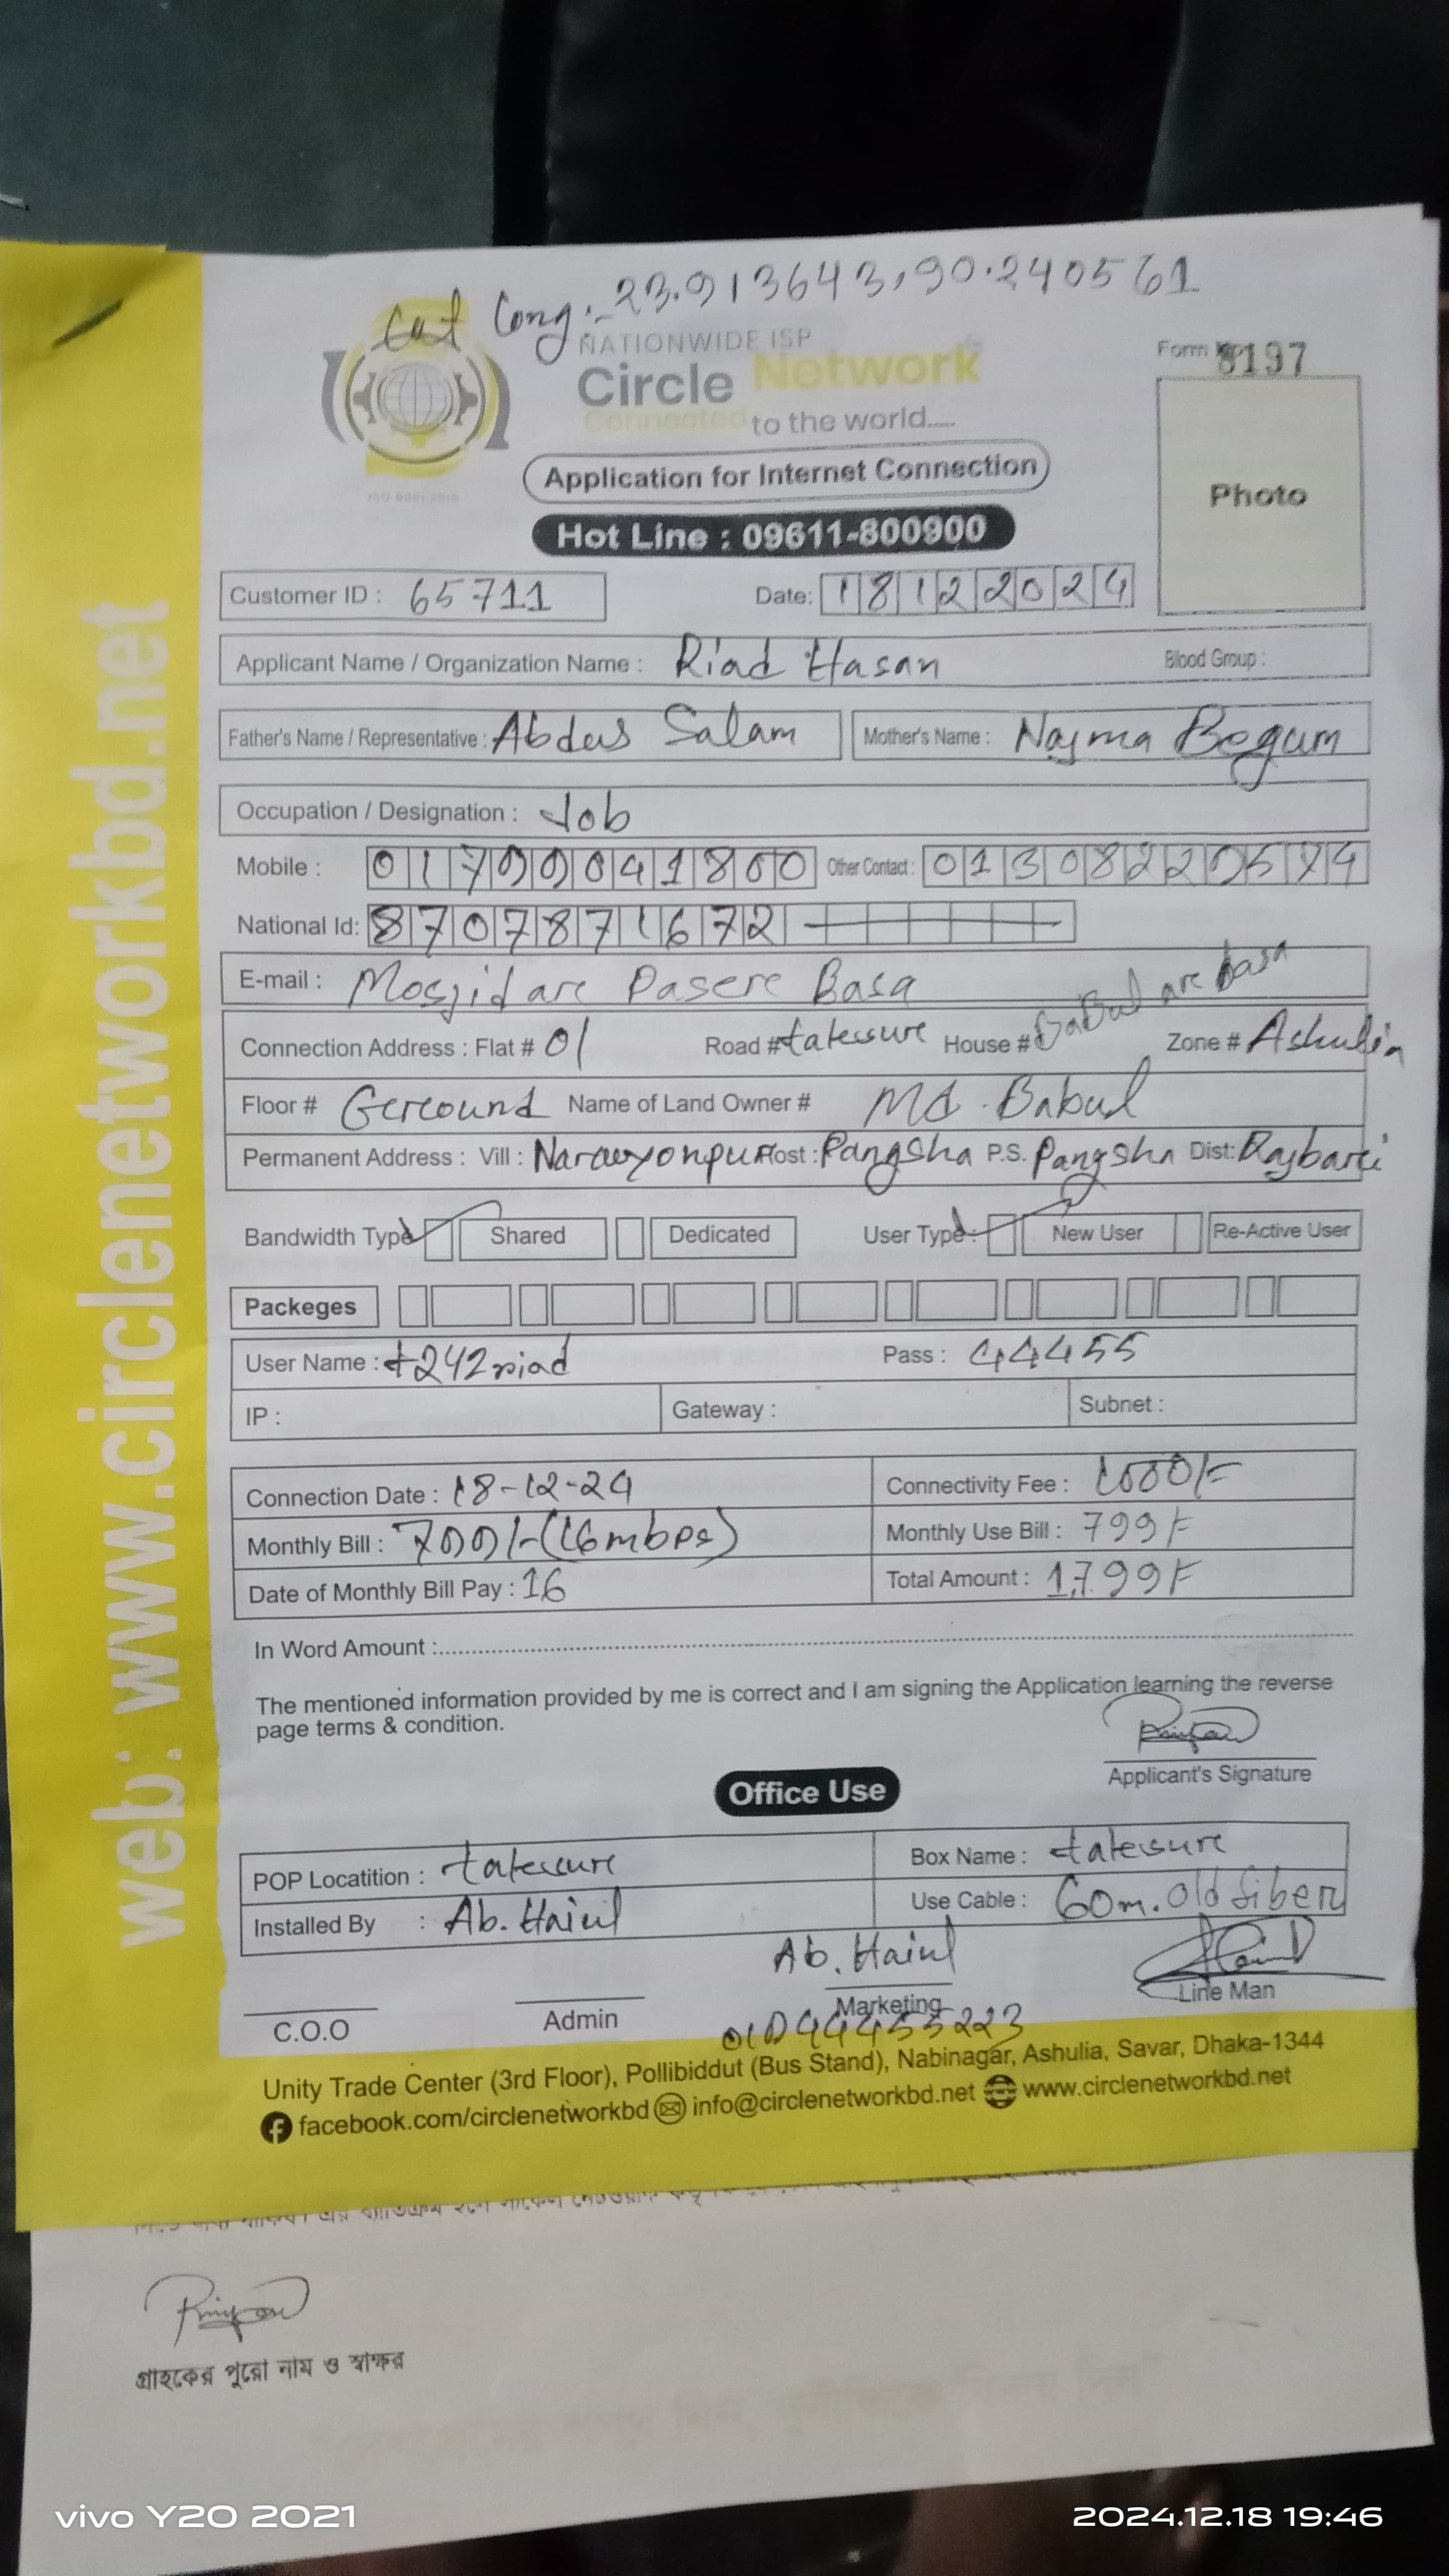 Cat Long:- 23.913643,90.240561
NATIONWIDE ISP
Circle Network
Connected to the world.....
Form No 8197
ISO 9001:2015
Application for Internet Connection
Photo
Hot Line : 09611-800900
Customer ID : 65711 Date: 18122024
Applicant Name / Organization Name : Riad Hasan Blood Group :
Father's Name / Representative : Abdus Salam Mother's Name : Najma Begum
Occupation / Designation : Job
Mobile : Other Contact :
National Id: 8707871672
E-mail : Mosjid are Pasere Basa
Connection Address : Flat # 01 Road # House # Babul are basa Zone # Ashulia
Floor # Gercound Name of Land Owner # Md. Babul
Permanent Address : Vill : Narayonpur Post : Pangsha P.S. Pangsha Dist: Rajbari
Bandwidth Type : Shared Dedicated User Type : New User Re-Active User
Packeges
User Name : t242riad Pass : 44455
IP : Gateway : Subnet :
Connection Date : 18-12-24 Connectivity Fee : 1000/=
Monthly Bill : 799/-(16mbps) Monthly Use Bill : 799/-
Date of Monthly Bill Pay : 16 Total Amount : 1,799/-
In Word Amount :
The mentioned information provided by me is correct and I am signing the Application learning the reverse
page terms & condition.
Applicant's Signature
Office Use
POP Locatition : Box Name :
Installed By : Ab. Use Cable : 60m. old fiber
Ab.
C.O.O Admin Marketing Line Man
Unity Trade Center (3rd Floor), Pollibiddut (Bus Stand), Nabinagar, Ashulia, Savar, Dhaka-1344
facebook.com/circlenetworkbd info@circlenetworkbd.net www.circlenetworkbd.net
web: www.circlenetworkbd.net
গ্রাহকের পুরো নাম ও স্বাক্ষর
vivo Y20 2021
2024.12.18 19:46